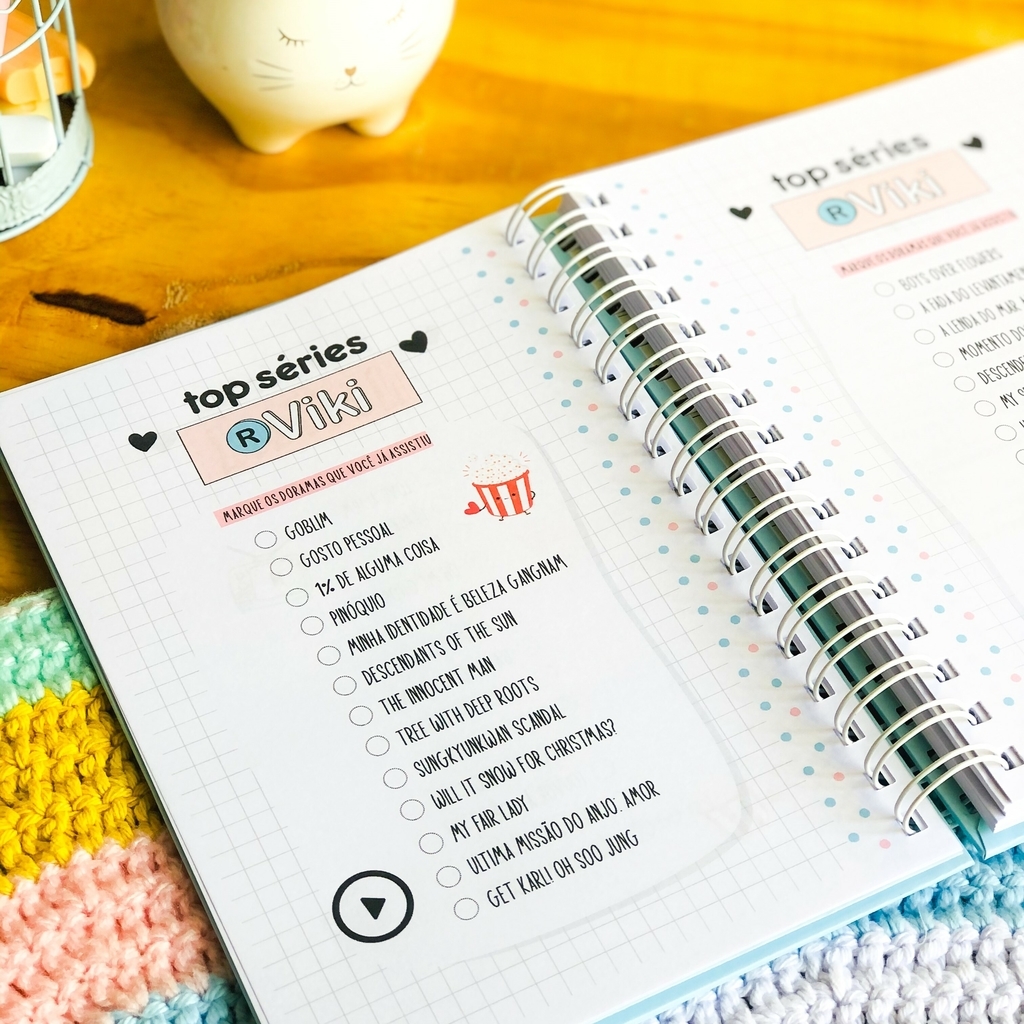 top séries
R Viki
MARQUE OS DORAMAS QUE VOCÊ JÁ ASSISTIU
GOBLIM
GOSTO PESSOAL
1% DE ALGUMA COISA
PINÓQUIO
MINHA IDENTIDADE É BELEZA GANGNAM
DESCENDANTS OF THE SUN
THE INNOCENT MAN
TREE WITH DEEP ROOTS
SUNGKYUNKWAN SCANDAL
WILL IT SNOW FOR CHRISTMAS?
MY FAIR LADY
ULTIMA MISSÃO DO ANJO: AMOR
GET KARL! OH SOO JUNG
top séries
R Viki
MARQUE OS DORAMAS QUE VOCÊ JÁ ASSISTIU
BOYS OVER FLOWERS
A FADA DO
A LENDA DO MAR
MOMENTO
MY